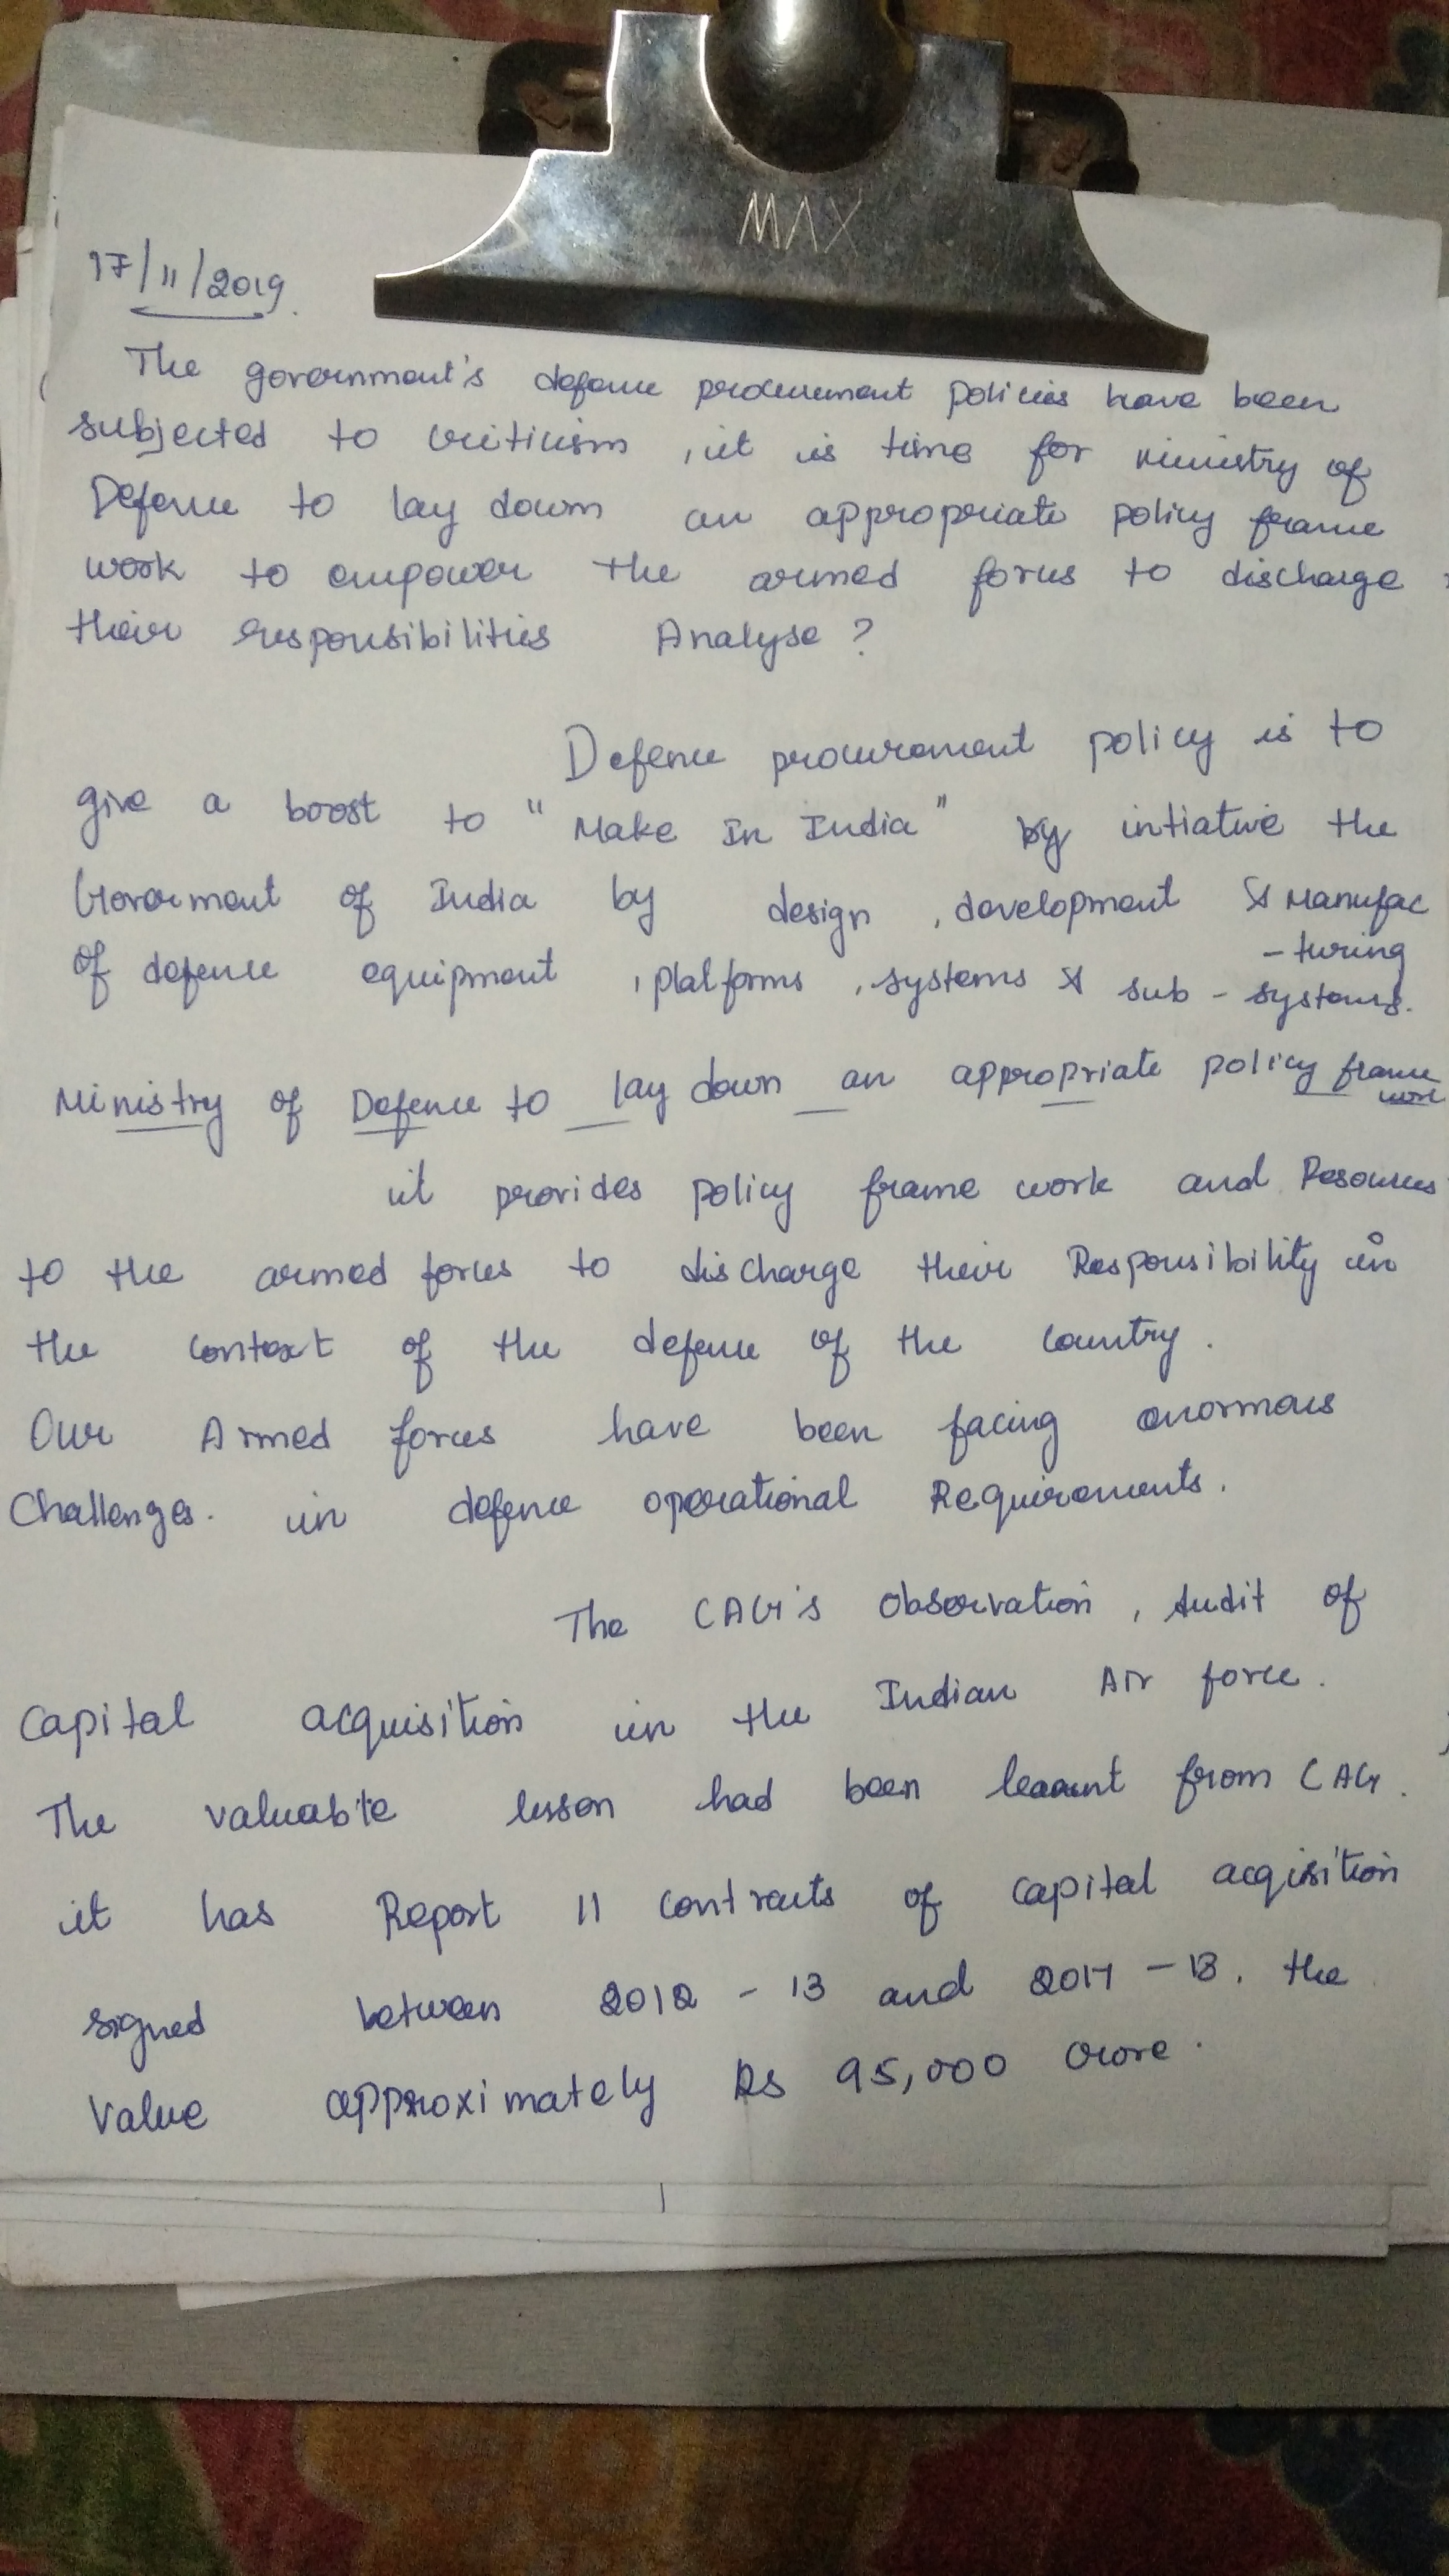 MAX
17/11/2019.
The government's defence procurement policies have been
subjected to criticism, it is time for Ministry of
Defence to lay down an appropriate policy frame
work to empower the armed forces to discharge
their responsibilities Analyse ?
Defence procurement policy is to
give a boost to "Make In India" by intiative the
Goverment of India by design, development & Manufac
-turing
of defence equipment, platforms, systems & sub-systems.
Ministry of Defence to lay down an appropriate policy frame
work
it provides policy frame work and Resources
to the armed forces to discharge their Responsibility in
the context of the defence of the country.
Our Armed forces have been facing enormous
Challenges. in defence operational Requirements.
The CAG's Observation, Audit of
Capital acquisition in the Indian Air force.
The valuable lesson had been learnt from CAG.
it has Report 11 contracts of capital acqisition
signed between 2012 - 13 and 2017 - 18. the
Value approximately Rs 95,000 crore.
1